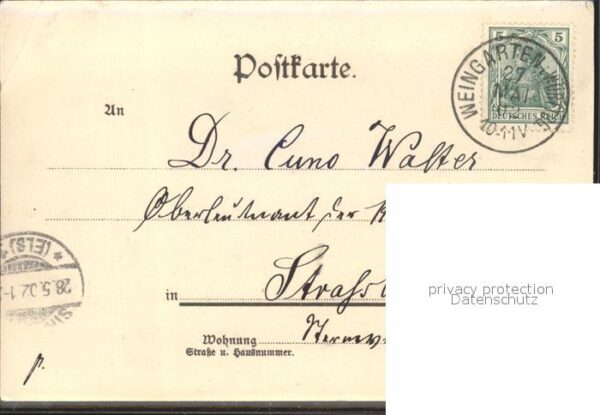 5 5
DEUTSCHES REICH
WEINGARTEN
27
MAI
02
10-11V
Postkarte.
An
Dr. Cuno Walter
Oberleutnant der R
in Strassb
Wohnung
Straße u. Hausnummer.
p.
* (ELS) *
28.5.02.1-
privacy protection
Datenschutz